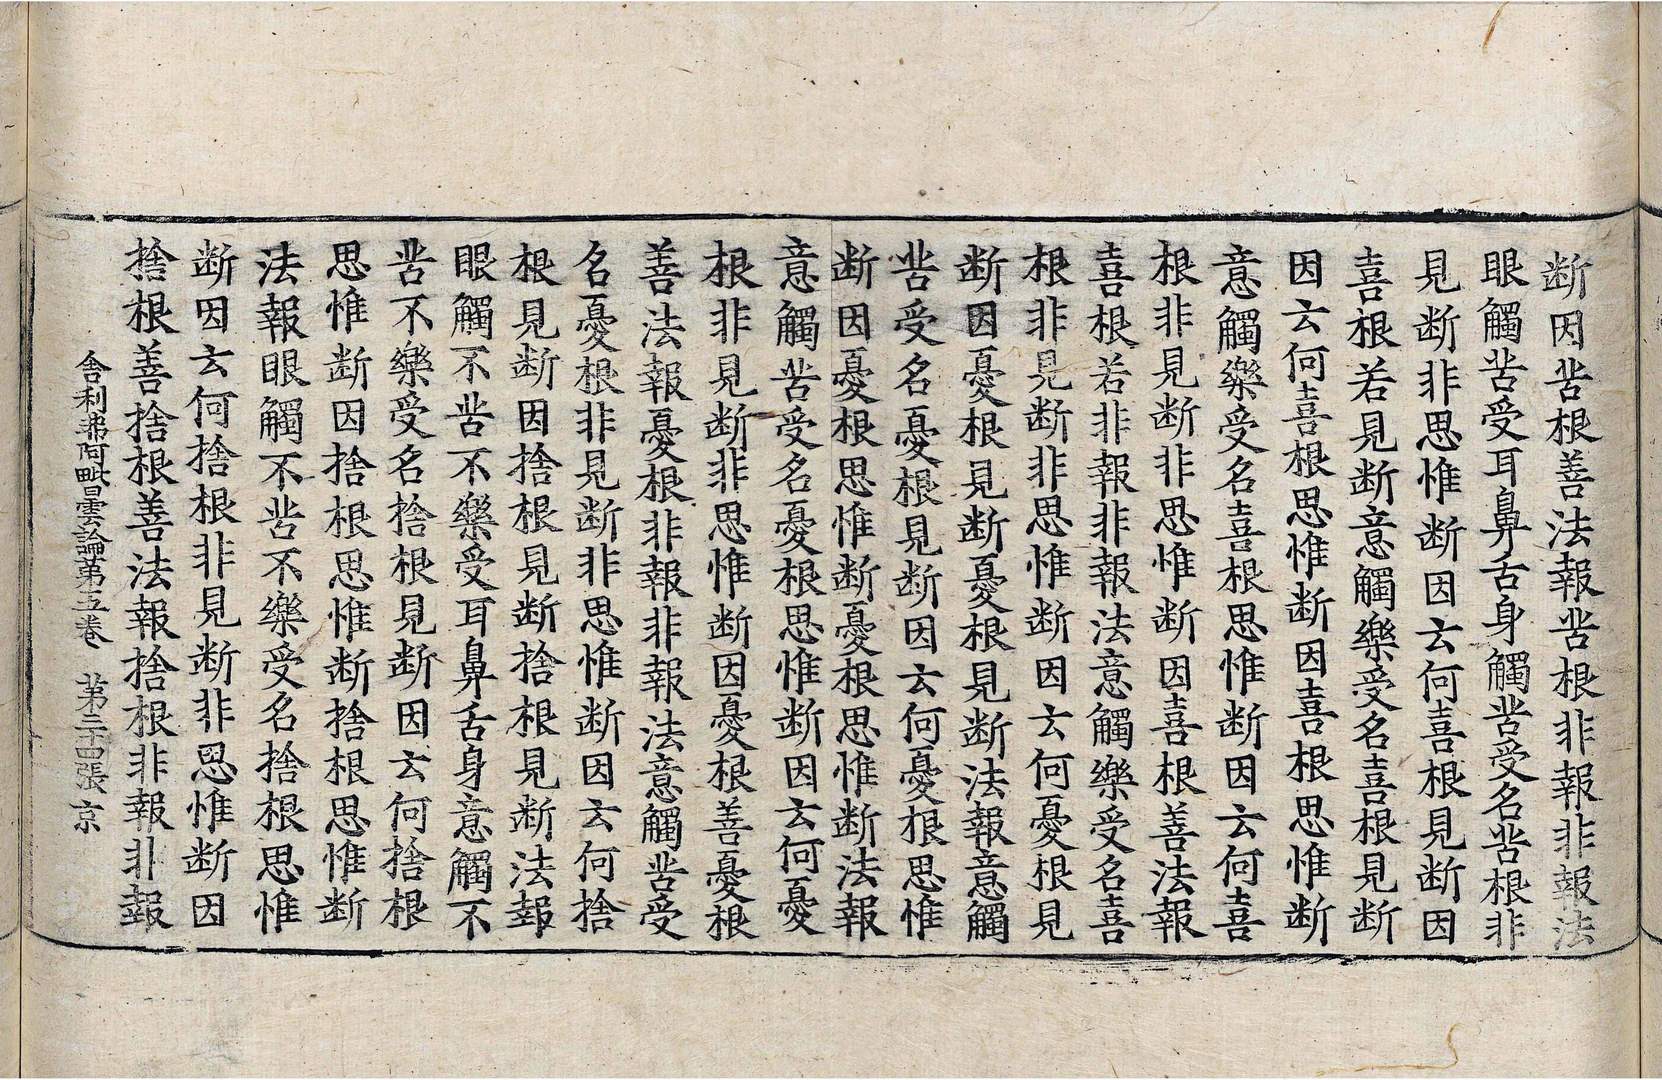 断因苦根善法報苦根非報非報法
眼觸苦受耳鼻舌身觸苦受名苦根非
見断非思惟断因云何喜根見断因
喜根若見断意觸樂受名喜根見断
因云何喜根思惟断因喜根思惟断
意觸樂受名喜根思惟断因云何喜
根非見断非思惟断因喜根善法報
喜根若非報非報法意觸樂受名喜
根非見断非思惟断因云何憂根見
断因憂根見断憂根見断法報意觸
苦受名憂根見断因云何憂根思惟
断因憂根思惟断憂根思惟断法報
意觸苦受名憂根思惟断因云何憂
根非見断非思惟断因憂根善憂根
善法報憂根非報非報法意觸苦受
名憂根非見断非思惟断因云何捨
根見断因捨根見断捨根見断法報
眼觸不苦不樂受耳鼻舌身意觸不
苦不樂受名捨根見断因云何捨根
思惟断因捨根思惟断捨根思惟断
法報眼觸不苦不樂受名捨根思惟
断因云何捨根非見断非思惟断因
捨根善捨根善法報捨根非報非報
舍利弗阿毗曇論第五卷 第二十四張 京